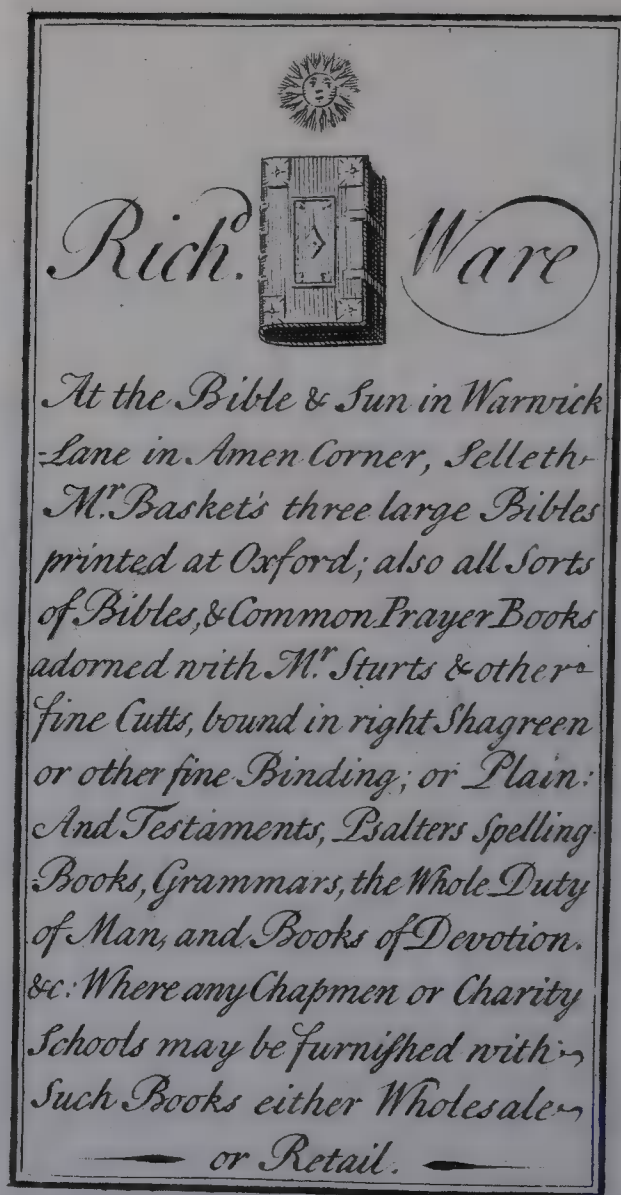 Rich.d Ware
At the Bible & Sun in Warwick
-Lane in Amen Corner, Selleth
M.r Basket's three large Bibles
printed at Oxford; also all Sorts
of Bibles, & Common Prayer Books
adorned with M.r Sturts & other
fine Cutts, bound in right Shagreen
or other fine Binding; or Plain:
And Testaments, Psalters Spelling
Books, Grammars, the Whole Duty
of Man, and Books of Devotion.
&c: Where any Chapmen or Charity
Schools may be furniſhed with
Such Books either Wholesale
or Retail.